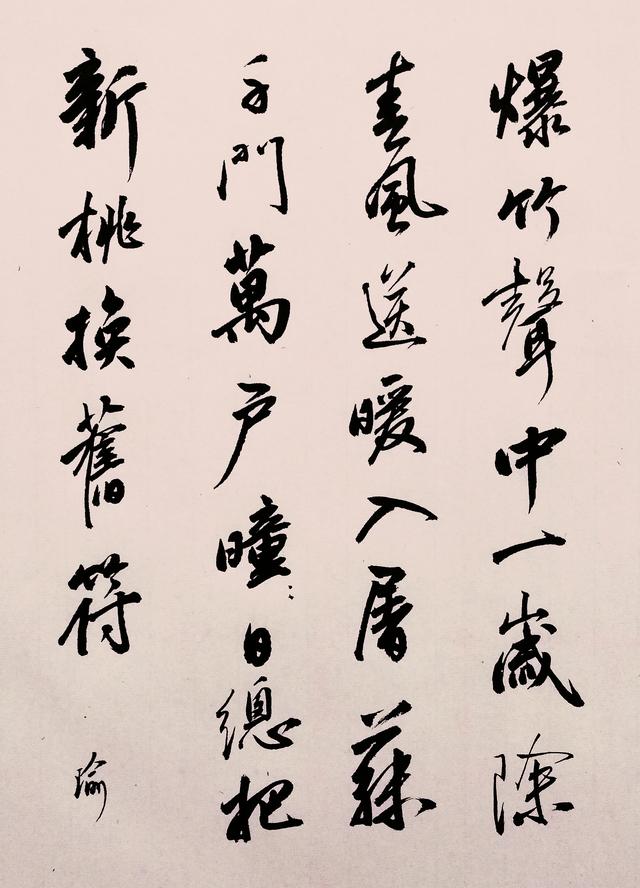 爆竹聲中一歲除
春風送暖入屠蘇
千門萬戶曈〻日總把
新桃換舊符
瑜